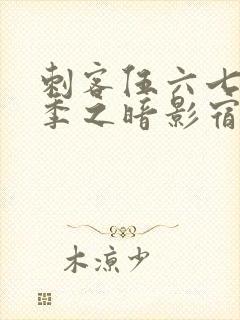 刺客伍六七
季之暗影宿
木凉少